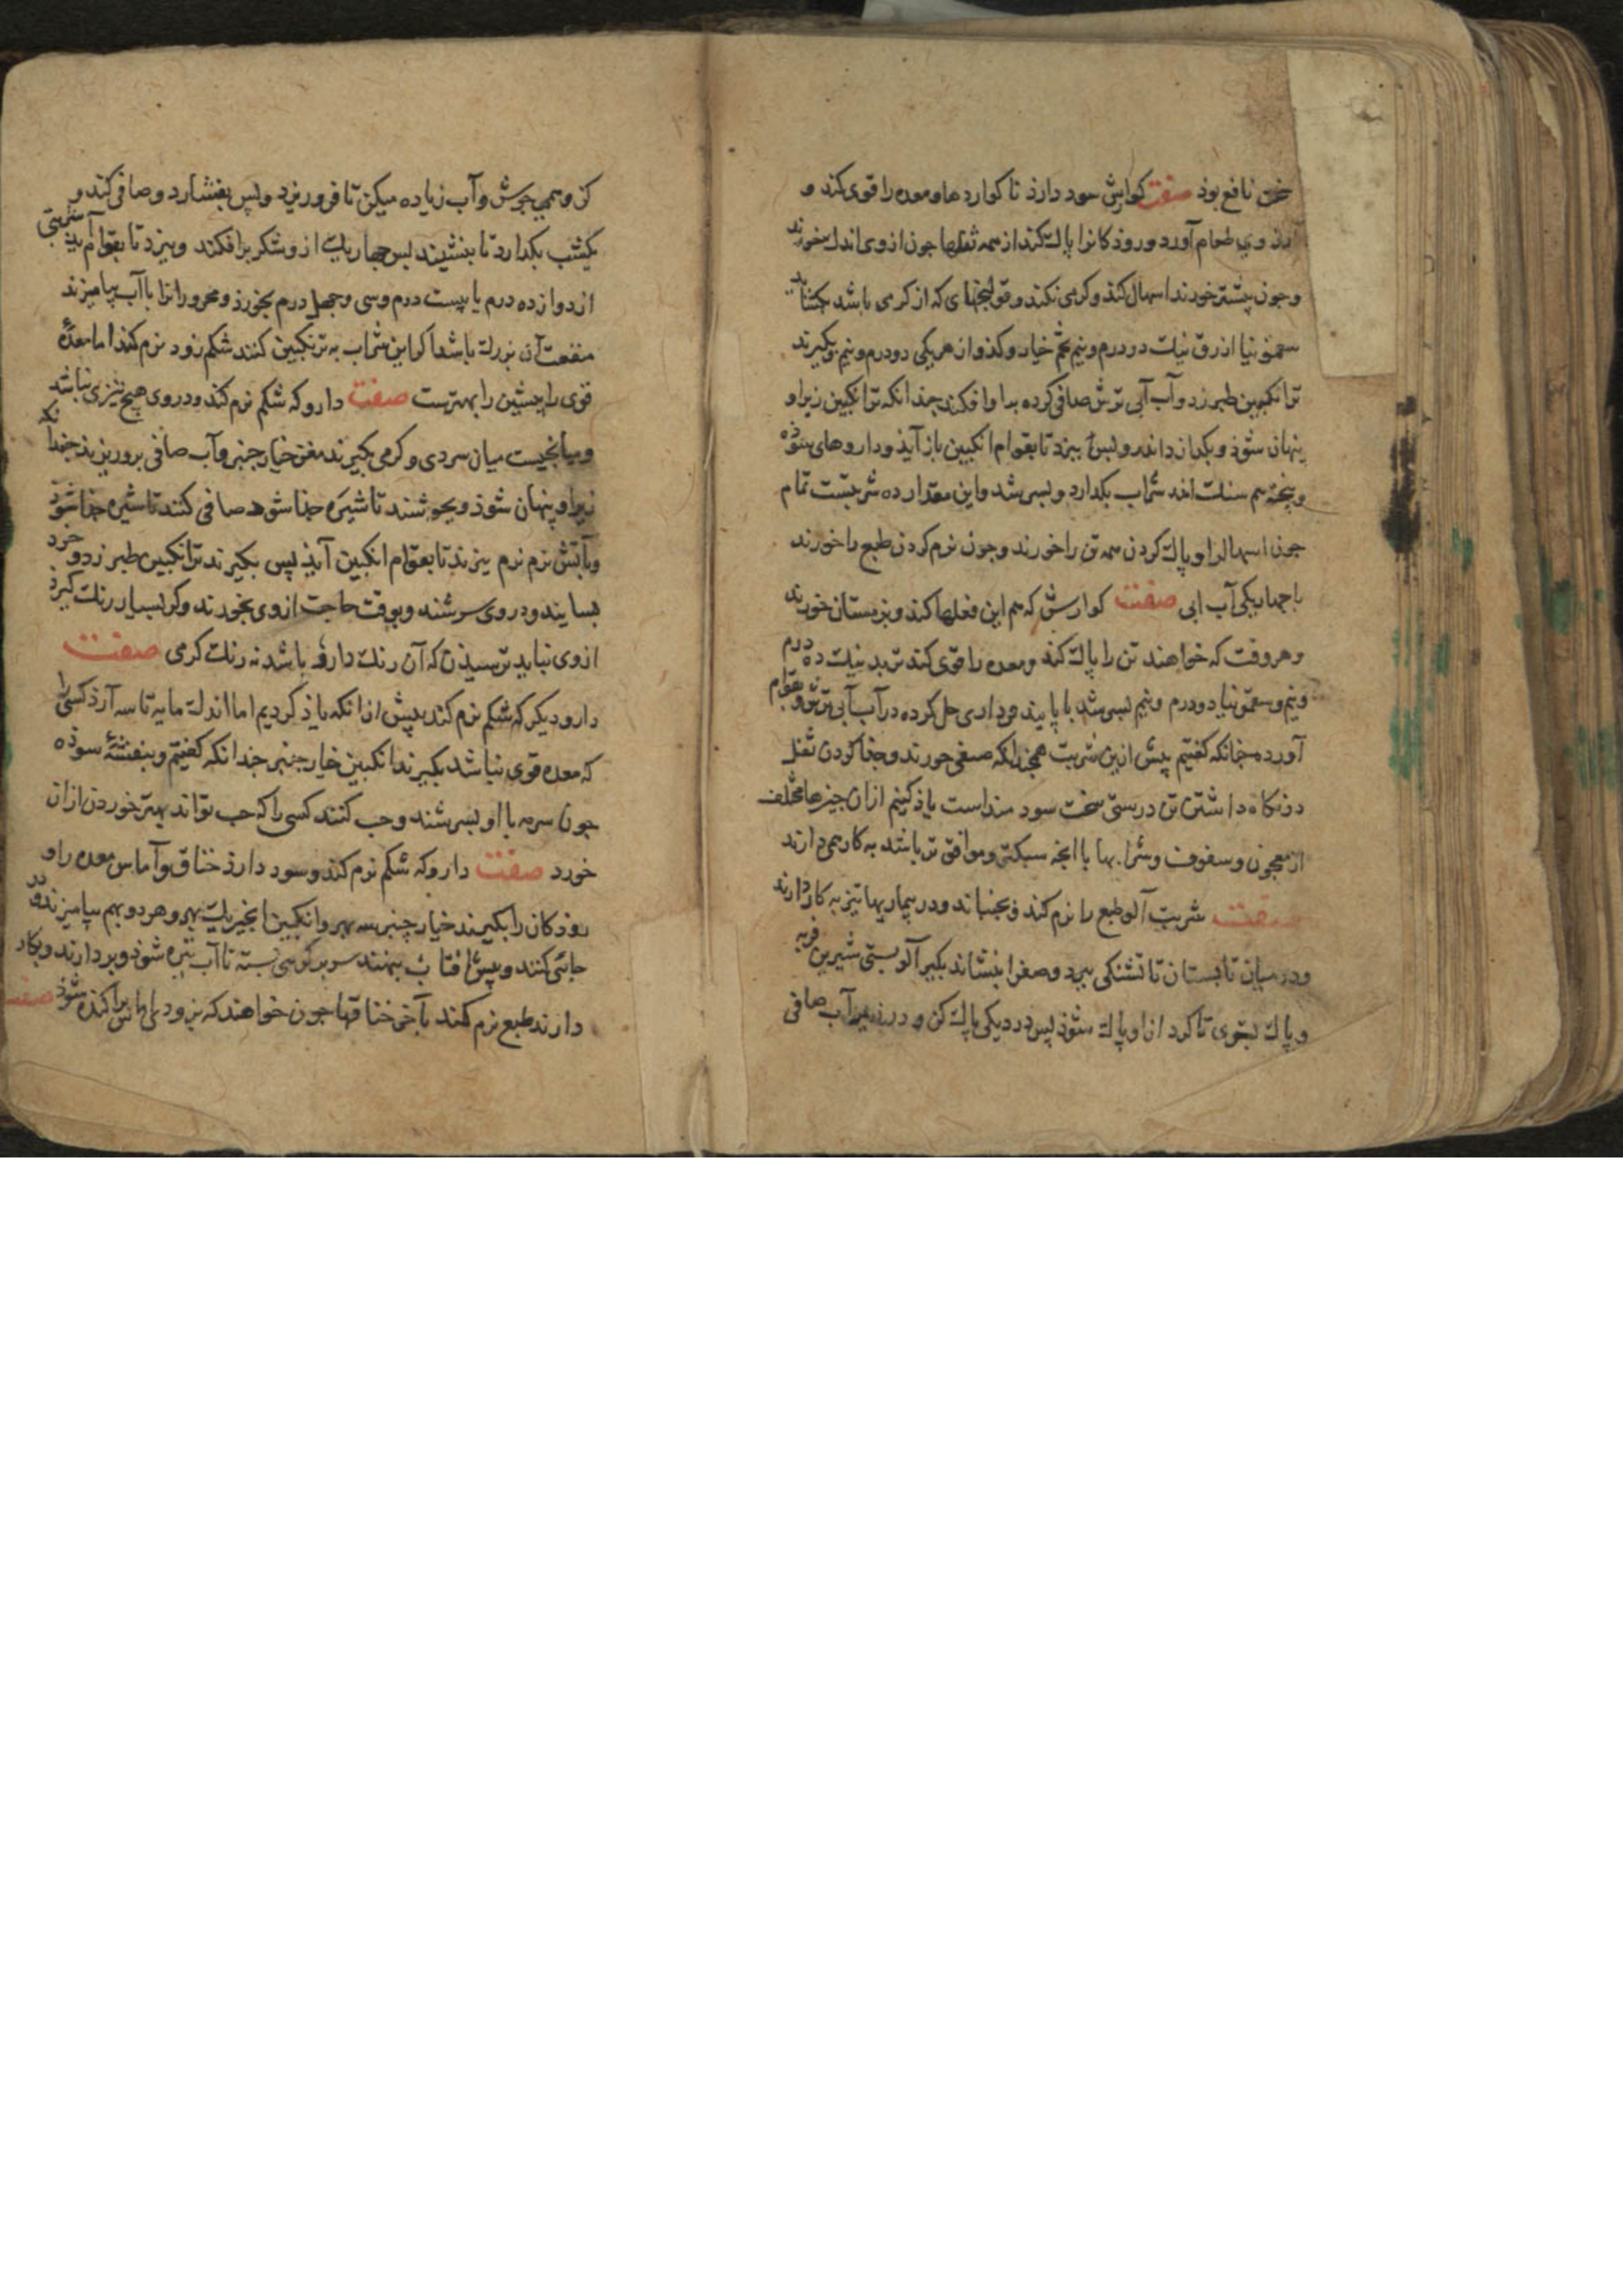 نافع بوذ صفت کوارش سود دارذ تا کوارد ها و معده را قوی کند و
ارزوی طعام آورد و روذکانرا پاک کند از همه ثفلها جون ازوی اندک خورند
وجون بیشتر خورند اسهال کند وکرمی نکند و قولنجهای که از کرمی باشد بکشاید
سقمونیا ازرق نیک دو درم و نیم تخم خیار و کذو از هر یکی دو درم و نیم بکیرند
ترانکبین طبرزد وآب آبی ترش صافی کرده بدا وا فکند جندانکه ترانکبین زیر او
پنهان شوذ و بکدازد اندر و پس بپزد تا بقوام انکبین باز آیذ و داروهای سوذه
وبیخته هم سنک شراب بکدارد و بسرشد واین مقدار ده شربتست تمام
جون اسهال را و پاک کردن همه تن را خورند وجون نرم کردن طبع را خورند
با جهار یکی آب ابی صفت کوارش که هم این فعلها کند و بزمستان خورند
وهر وقت که خواهند تن را پاک کند ومعده را قوی کند تربد نیک ده درم
ونیم و سقمونیا دو درم و نیم بسرشد با پانیذ در آب آبی ترش و بقوام
آورده جنانکه کفتیم پیش ازین شربت همجنانکه صفتی خورند وجذا کردن ثفل
در نکاه داشتن تن درستی سخت سود منداست یاذ کنیم ازان جیزها مختلف
از معجون و سفوف و شرابها با انجه سبکتر و موافق تر باشد به کار همی دارند
صفت شربت آلو طبع را نرم کند و بجنباند و در بیماریها تیز به کار دارند
ودر میان تابستان تا تشنکی ببرد و صفرا بنشاند بکیر آلو بستی شیرین فربه
و پاک بشوی تا کرد از او پاک شوذ پس در دیکی پاک کن و در زیر آب صافی
کن و همی جوش وآب زیاده میکن تا فرو ریزد و پس بفشارد و صافی کند و
یکشب بکذارد تا بنشیند پس جهار یک از و شکر برافکند و بپزد تا بقوام آید شربتی
از دوازده درم یا بیست درم وسی وجهل درم بخورذ و محرورانرا با آب بیامیزند
منفعت آن بزرک باشد اکر این شراب به ترنکبین کنند شکم زود نرم کند اما معدهٔ
قوی را جنین را بهترست صفت دارو که شکم نرم کند و دروی هیج تیزی نباشد
ومیانجیست میان سردی و کرمی بکیرند مغز خیار جنبر وآب صافی برو ریزند جندانکه
زیر او پنهان شوذ و بجوشند تا شیره جذا شود صافی کنند تا شیره جذا شود
وبآتش نرم نرم بپزند تا بقوام انکبین آیذ پس بکیرند ترانکبین طبرزد و خرد
بسایند و در وی سرشند و بوقت حاجت ازوی بخورند وکر بسیار رنک کیرذ
ازوی نباید ترسیذن که آن رنک دارو باشد نه رنک کرمی صفت
دارو دیکر که شکم نرم کند بیش از انکه یاذ کردیم اما اندک مایه تاسه آرذ کسی را
که معده قوی نباشد بکیرند انکبین خیار جنبر جندانکه کفتیم و بنفشهٔ سوذه
جون سرمه با او بسرشند وحب کنند کسی را که حب تواند بهتر خوردن ازان
خورد صفت دارو که شکم نرم کند و سود دارذ خناق وآماس معده را و
روذکان را بکیرند خیار چنبر سه بهر و انکبین انجیر یک بهر و هر دو بهم بیامیزند و در
جائی کنند و پیش افتاب بنهند سر بر کوهی بسته تا آب تیره شوذ و بر دارند و بکار
دارند طبع نرم کند بآخر خناقها جون خواهند که بزودی اماس براکنده شوذ صفت